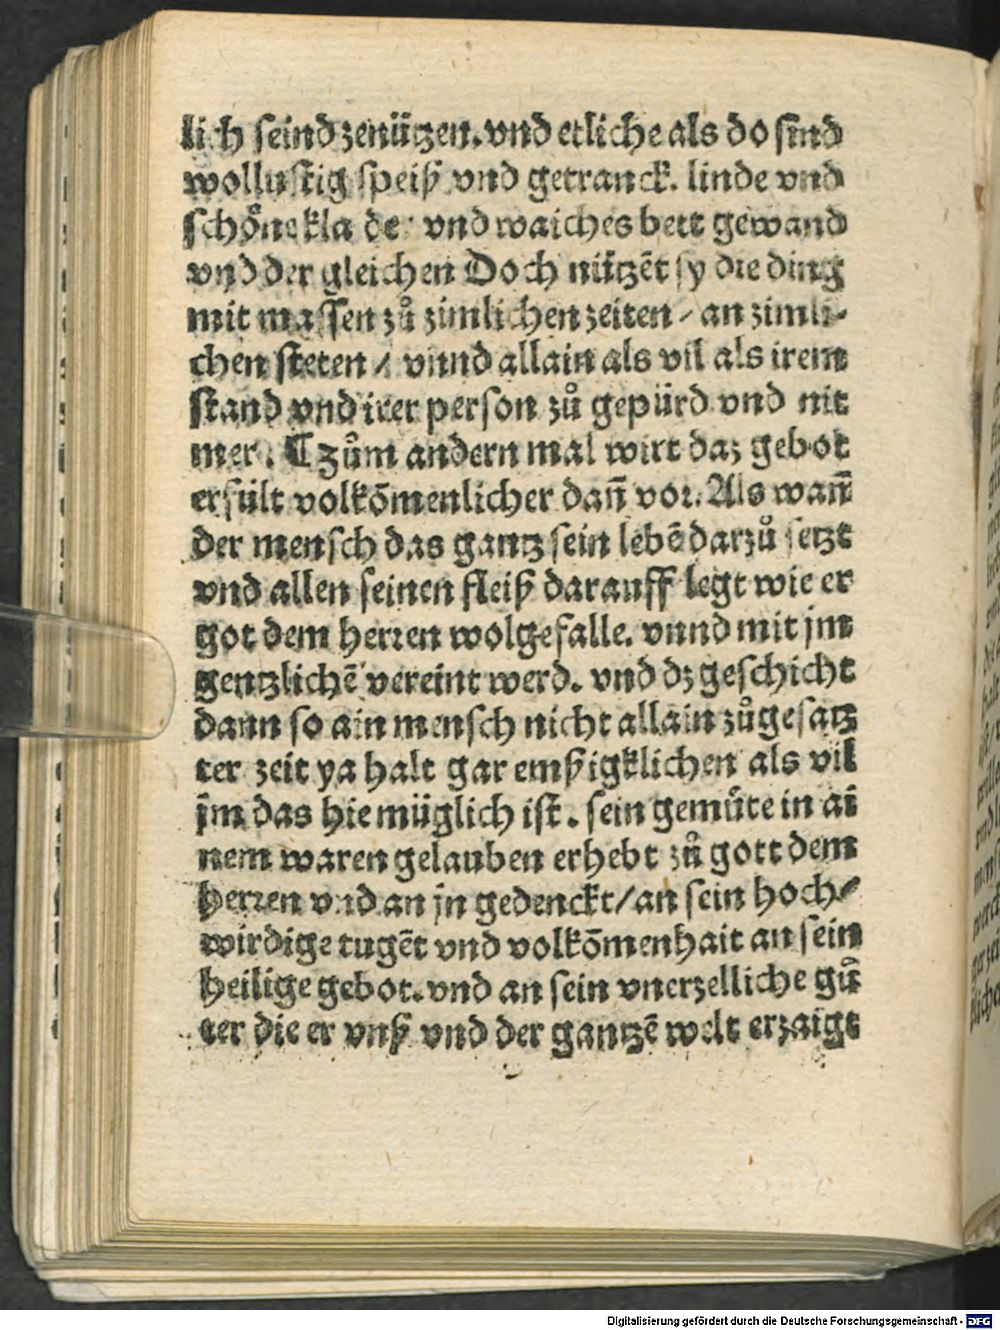 lich seind zenützen. vnd etliche als do sind
wollustig speiß vnd getranck. linde vnd
schoͤne klaider vnd waiches bett gewand
vnd der gleichen Doch nützēt sy die ding
mit massen zů zimlichen zeiten / an zimli-
chen steten / vnnd allain als vil als irem
stand vnd irer person zů gepürd vnd nit
mer. ¶ Zům andern mal wirt daz gebot
erfült volkōmenlicher dañ vor. Als wañ
der mensch das gantz sein lebē darzů setzt
vnd allen seinen fleiß darauff legt wie er
got dem herren wolgefalle. vnnd mit jm
gentzlichē vereint werd. vnd dz geschicht
dann so ain mensch nicht allain zůgesatz
ter zeit ya halt gar emßigklichen als vil
jm das hie müglich ist. sein gemuͤte in ai
nem waren gelauben erhebt zů gott dem
herren vnd an jn gedenckt/an sein hoch/
wirdige tugēt vnd volkōmenhait an sein
heilige gebot. vnd an sein vnerzelliche guͤ
ter die er vnß vnd der gantzē welt erzaigt
Digitalisierung gefördert durch die Deutsche Forschungsgemeinschaft - DFG